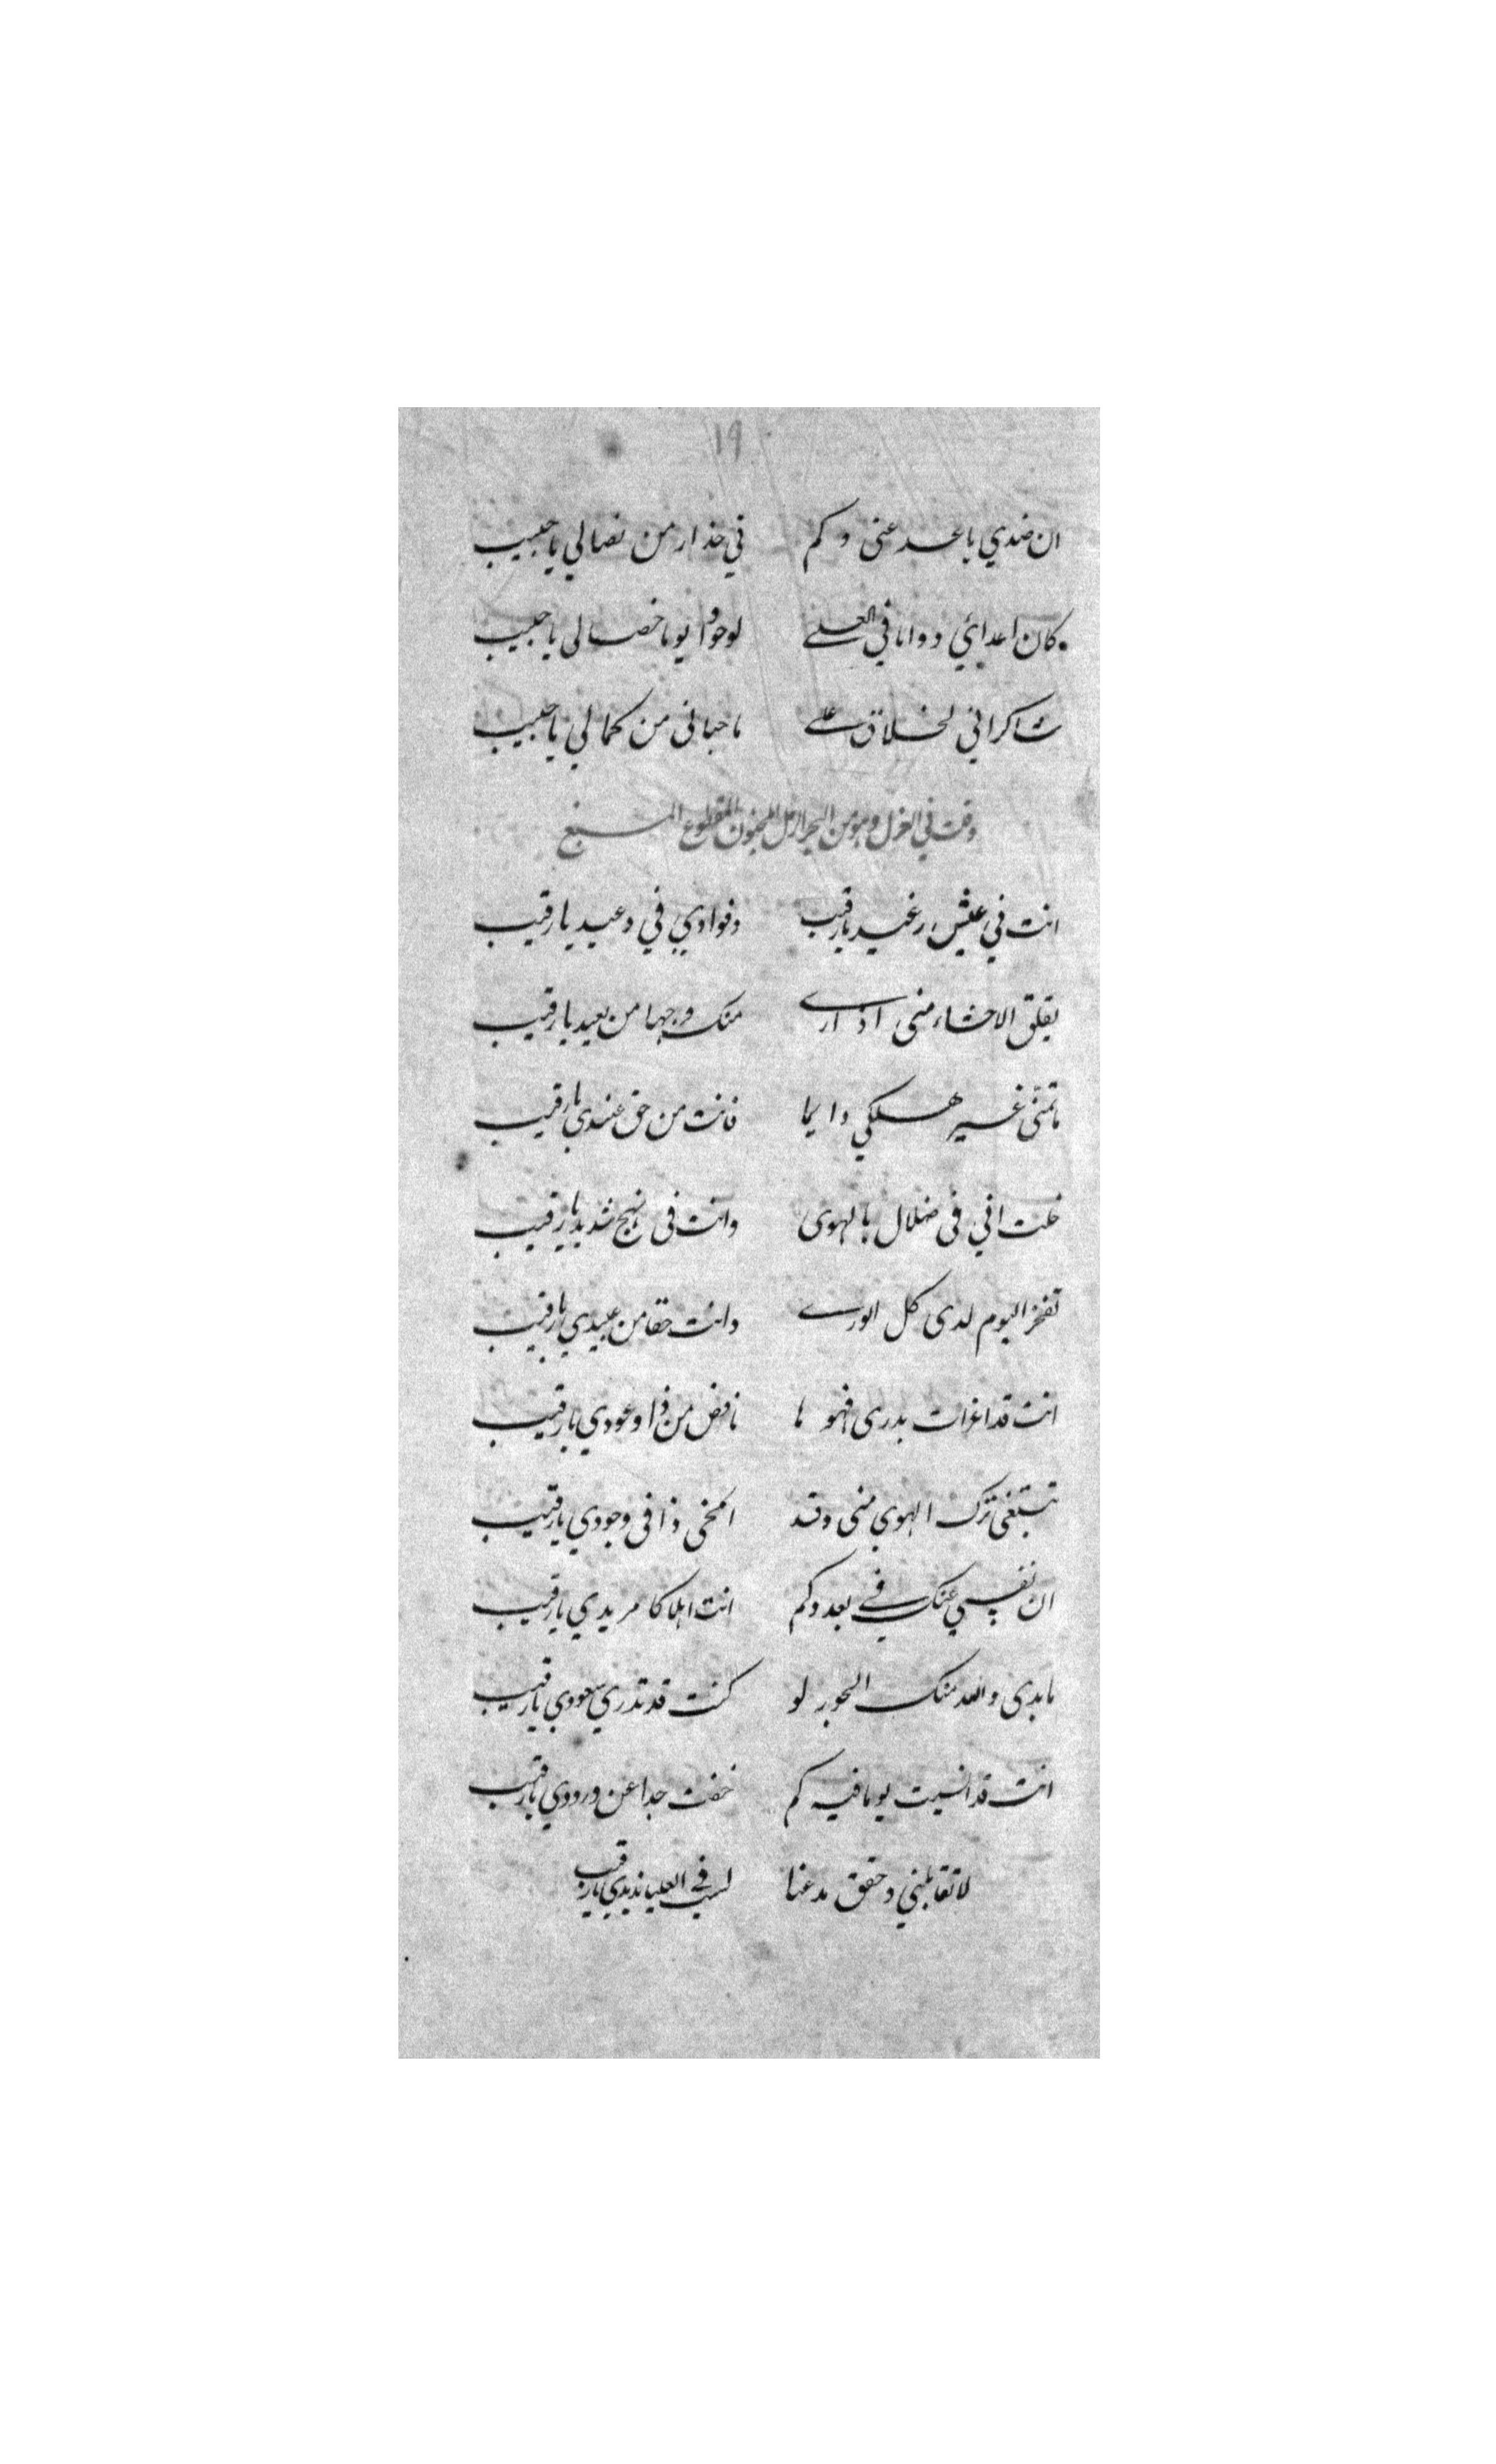 ١٩
ان ضدي باعد عنى وكم في حذار من نصالي يا حبيب
كان اعدائي دواما في العلے لو حووا يوما خصالى يا حبيب
شاكرا اني لخلاق علے ما حبانى من كمالي يا حبيب
وقت في الغزل وهو من البحر الرمل المخبون المقطوع المسبغ
انت في عيش رغيد يا رقيب وفوادي في وعيد يا رقيب
يقلق الاحشاء منى اذ ارے منك وجها من بعيد يا رقيب
ما تمنّى غير هلكي دايما فانت من حق عندي يا رقيب
خلت اني فى ضلال بالهوى وانت فى نهج شديد يا رقيب
تفخر اليوم لدى كل الورے وانت حقا من عبيدي يا رقيب
انت قد اغرات بدرى فهو ما نافض من ذا وعودي يا رقيب
تبتغى ترك الهوي منى وقد امخى ذا فى وجودي يا رقيب
ان نفسي عنك في بعد وكم انت اهلاكا مريدي يا رقيب
ما بدى والله منك الجور لو كنت قد تدري سعودي يا رقيب
انت قد انسيت يوما فيه كم خفت جدا عن ورودي يا رقيب
لا تقابلني وحقق مدعنا لست في العليا نديدي يا رقيب